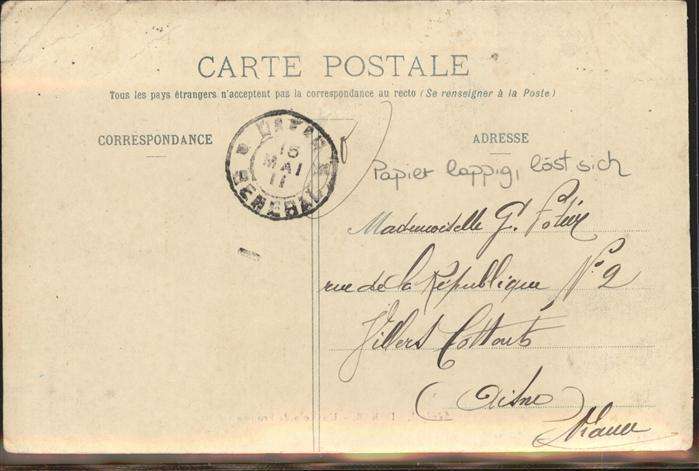 CARTE POSTALE
Tous les pays étrangers n'acceptent pas la correspondance au recto (Se renseigner à la Poste)
CORRESPONDANCE
ADRESSE
16
MAI
11
SENEGAL
Papier lappig, löst sich
Mademoiselle G.
rue de la République N° 2
Villers Cotterets
(Aisne)
France